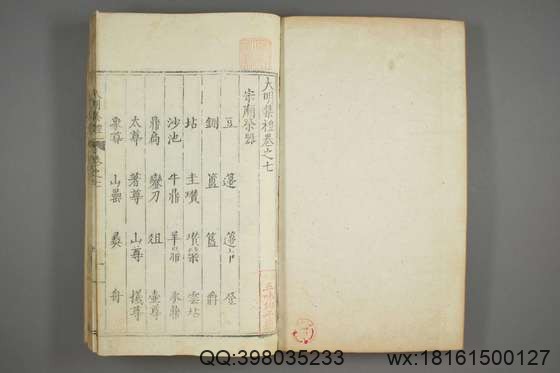 大明集禮卷之七
宗廟祭器
豆 籩 籩巾 登
鉶 簠 簋 爵
坫 圭瓚 瓚槃 雲坫
沙池 牛鼎 羊鼎 豕鼎
鼎扃 鸞刀 俎 壺尊
太尊 著尊 山尊 犧尊
象尊 山罍 彞 舟
QQ:398035233
wx:18161500127